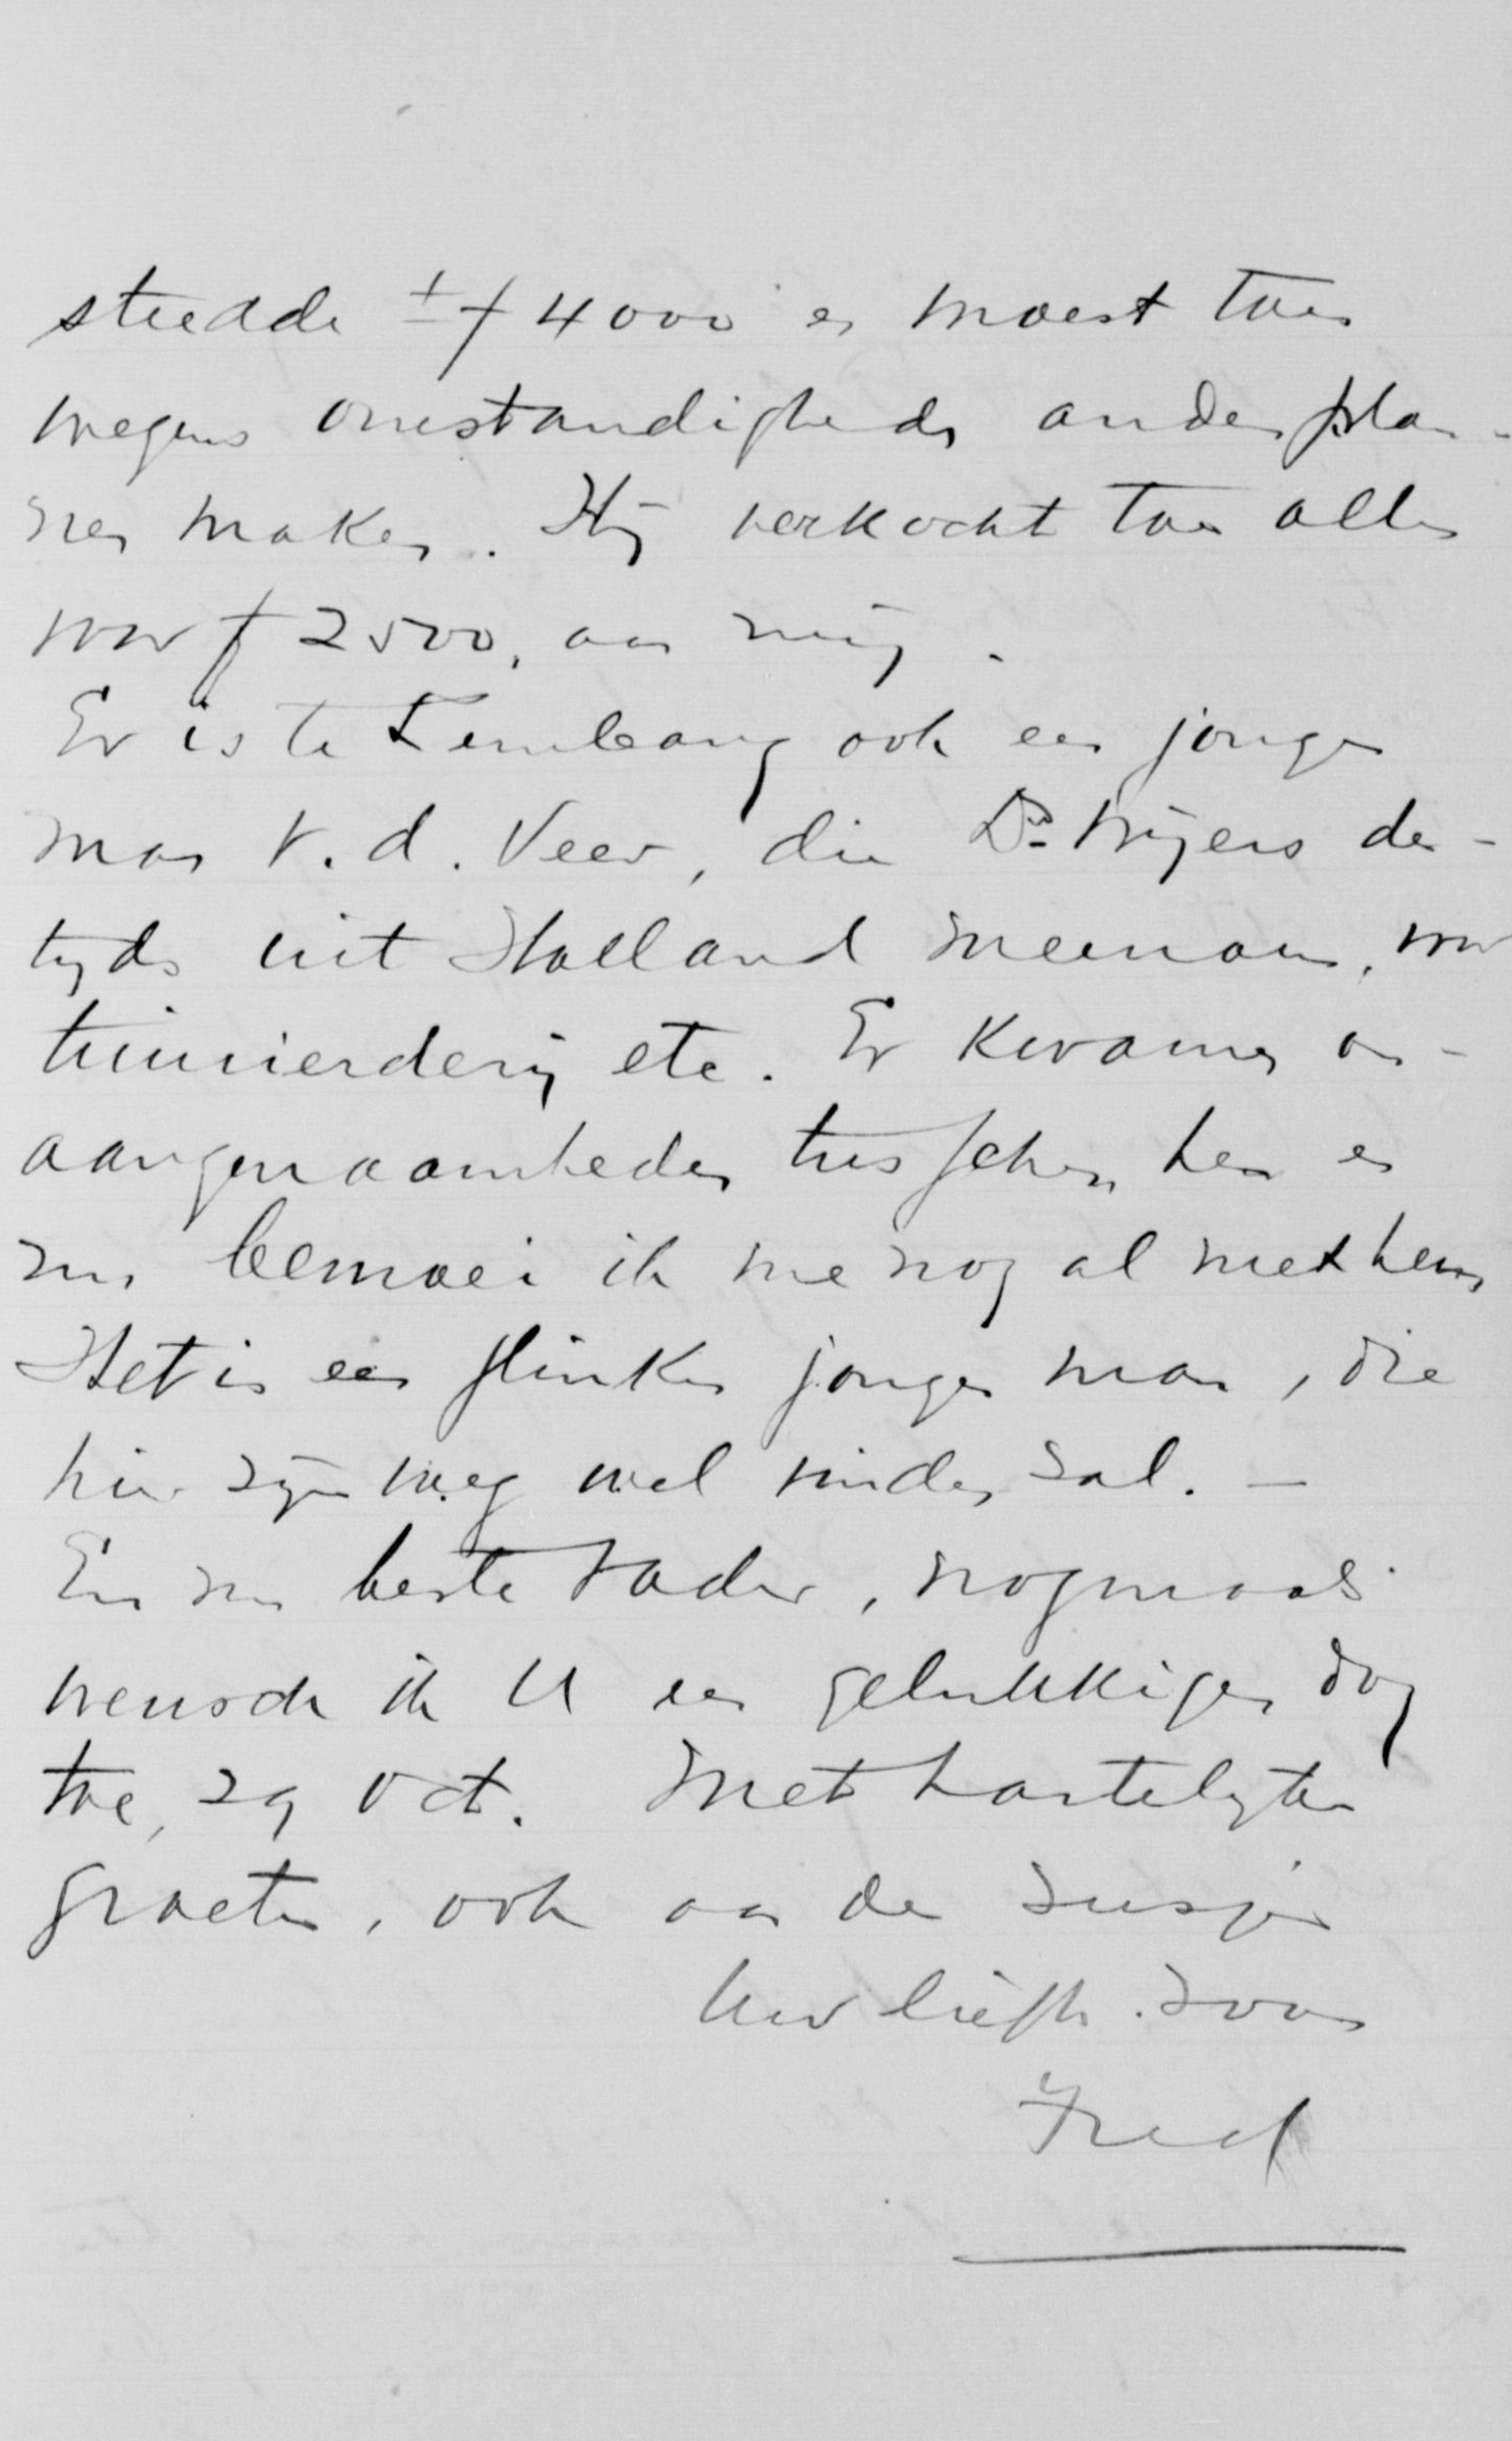 steedde ± f 4000 en moest toen
wegens omstandigheden andere plan-
nen maken. Hij verkocht toen alles
voor f 2500, aan mij.
Er is te Lembang ook een jonge
man v. d. Veer, die Dr. Wijers der-
tyds uit Holland meenam, voor
tuinierderij etc. Er kwamen on-
aangenaamheden tusschen hen en
nu bemoei ik me nog al met hem
Het is een flinke jonge man, die
hier zijn weg wel vinden zal. —
En nu beste Vader, nogmaals
wensch ik U een gelukkigen dag
toe, 29 Oct. Met hartelykte
groeten, ook aan de zusjes
Uw liefh. zoon
Fred